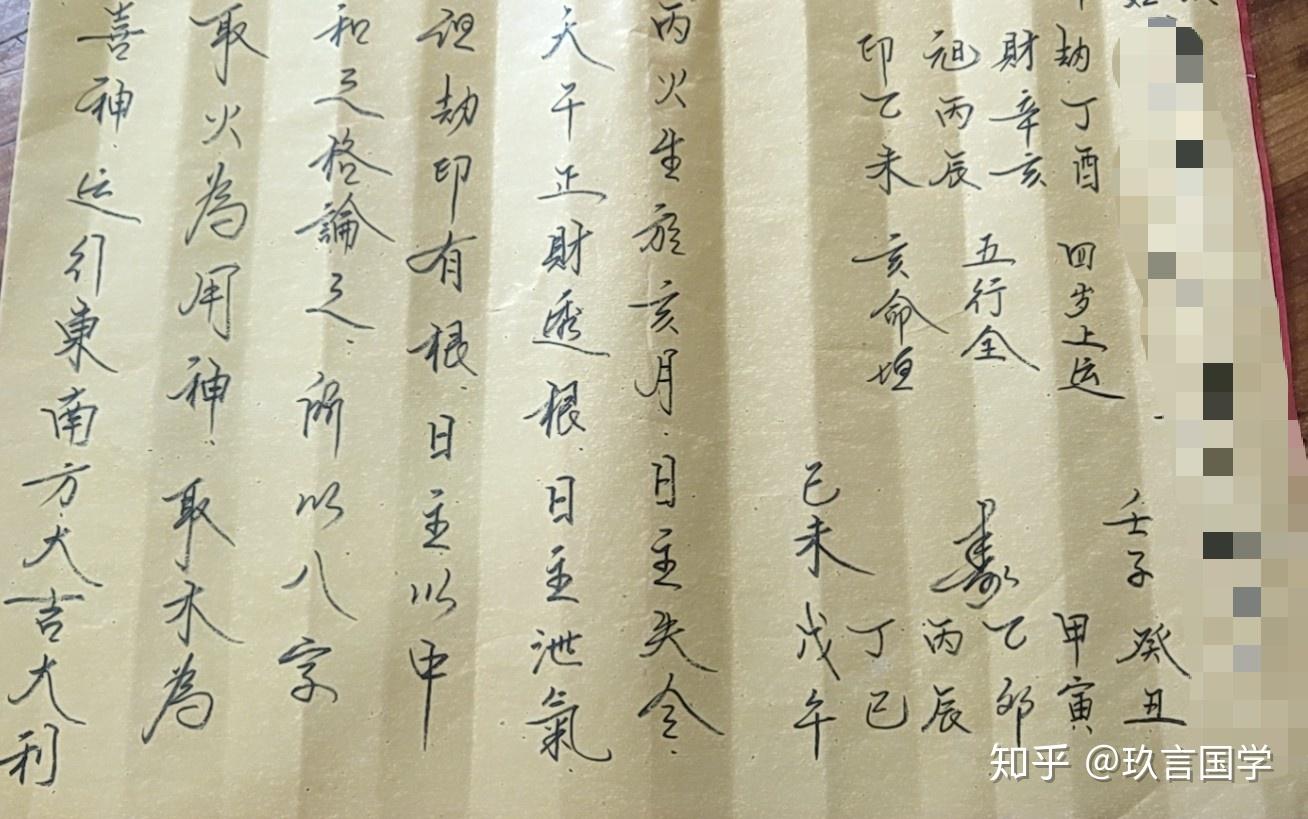 劫丁酉 四岁上运
財辛亥 五行全
丙辰
印乙未 亥命垣
壬子 癸丑
甲寅
寿 乙卯
丙辰
丁巳
己未 戊午
丙火生於亥月.日主失令.
天干正財透根.日主泄氣.
劫印有根.日主以中
和之格論之.所以八字
取火為用神.取木為
喜神.运行東南方大吉大利
知乎 @玖言国学